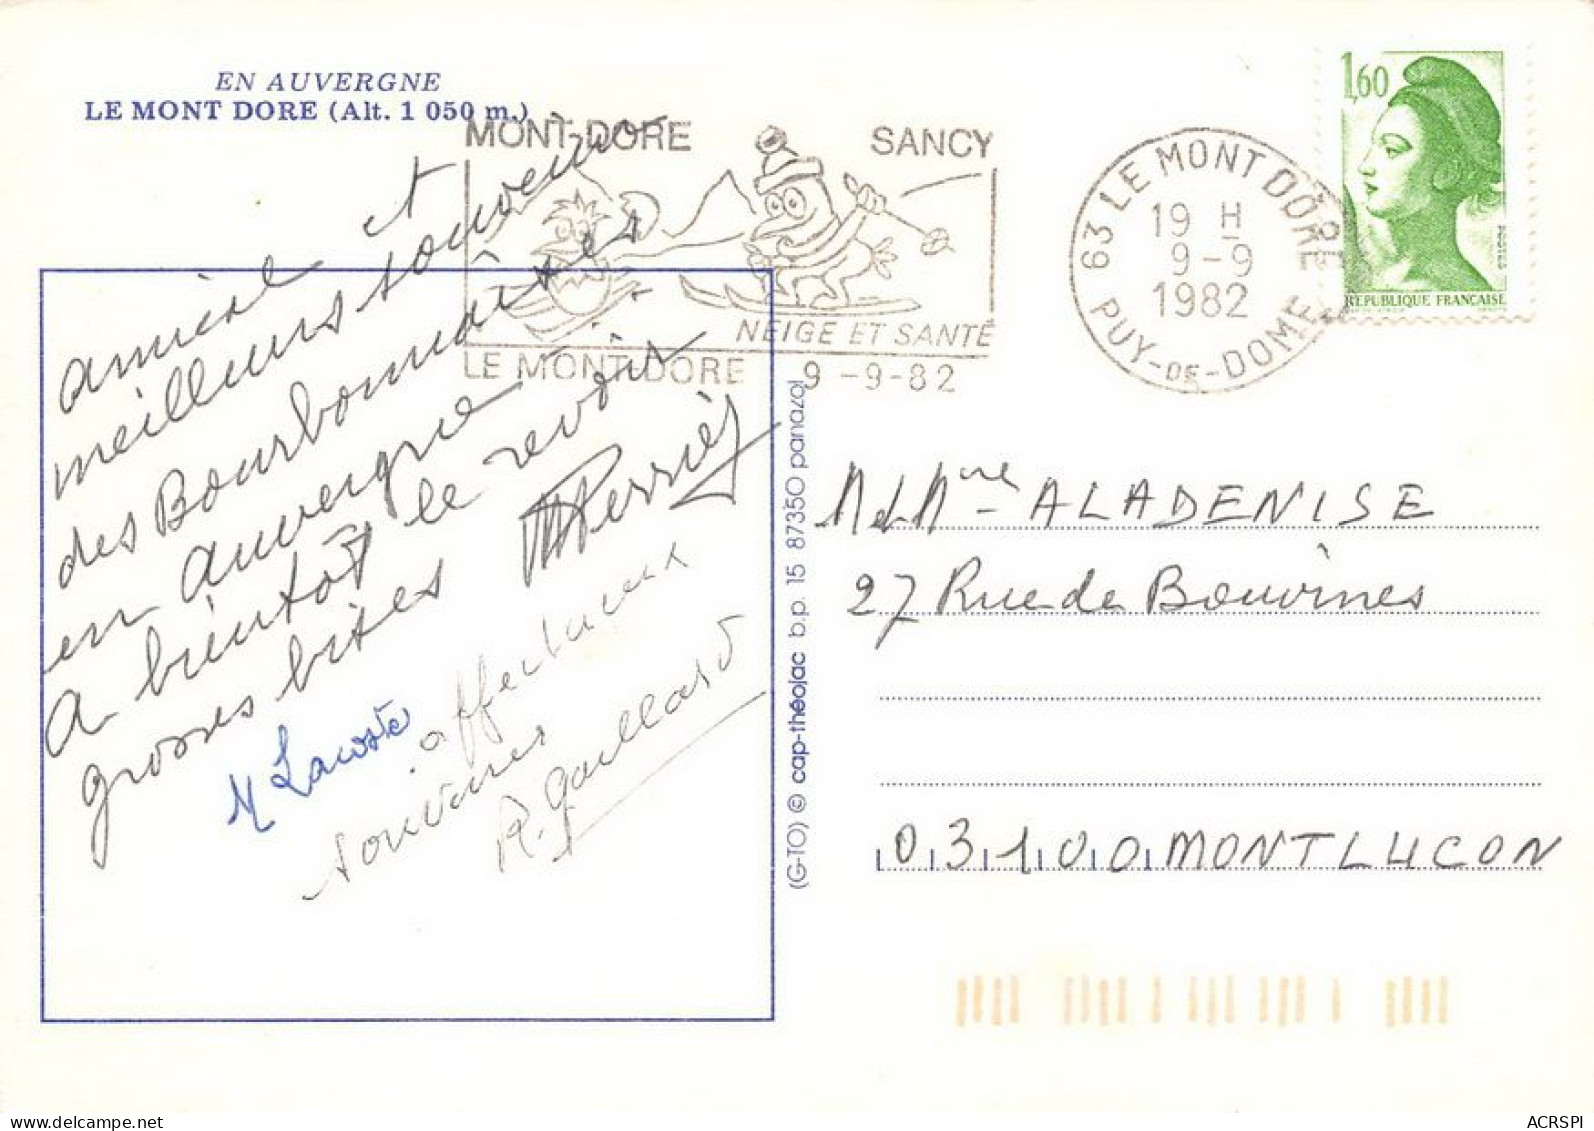 EN AUVERGNE
LE MONT DORE (Alt. 1 050 m.)
MONT-DORE SANCY
NEIGE ET SANTÉ
LE MONT DORE 9-9-82
63 LE MONT DORE
19 H
9-9
1982
PUY-DE-DOME
1,60
POSTES
REPUBLIQUE FRANÇAISE
amical et
meilleurs souvenir
des Bourbonnaises
en auvergne
A bientôt le revoir
grosses bises
Perrier
M Lacoste
affectueux
souvenirs
R. Gaillard
(G-TO) © cap-théojac b.p. 15 87350 panazol
M et Mme ALADENISE
27 Rue de Bouvines
03100 MONTLUCON
delcampe.net
ACRSPI